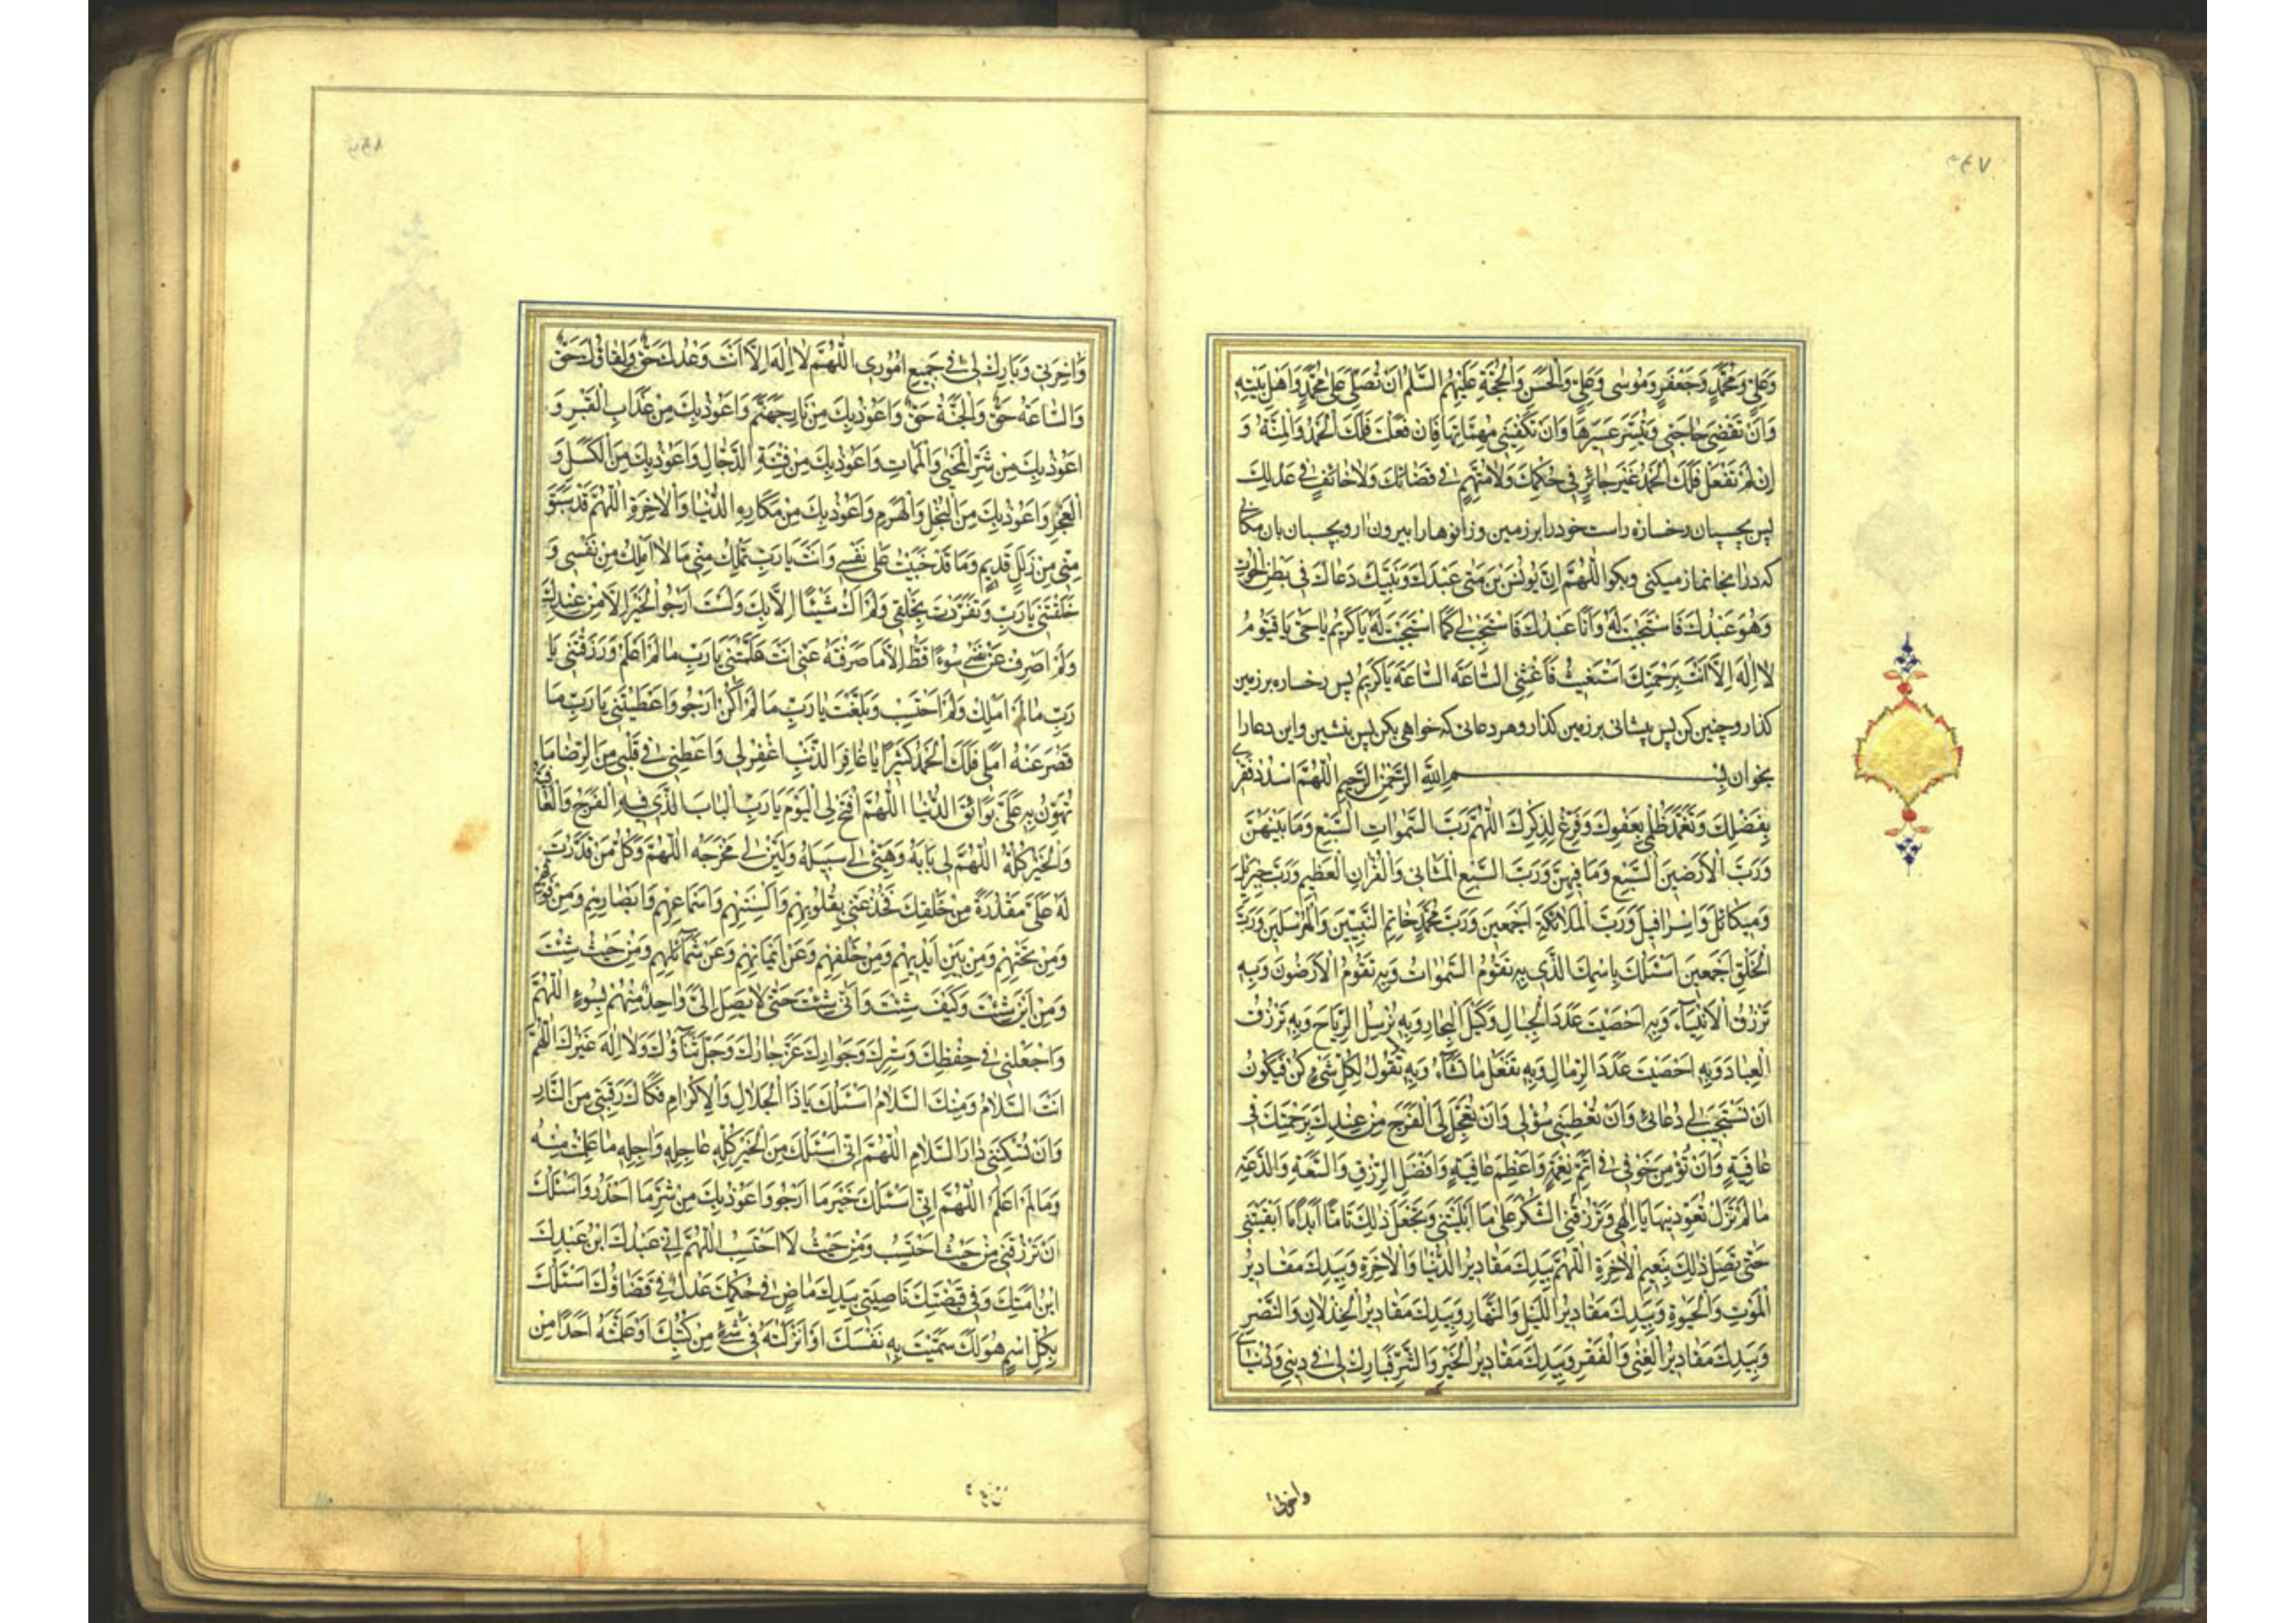 ۴۴۷
وَعَلِيٍّ وَمُحَمَّدٍ وَجَعْفَرٍ وَمُوسٰى وَعَلِيٍّ وَالْحَسَنِ وَالْحُجَّةِ عَلَيْهِمُ السَّلٰمُ اَنْ تُصَلِّيَ عَلىٰ مُحَمَّدٍ وَاَهْلِ بَيْتِهِ
وَاَنْ تَقْضِيَ حٰاجَتِي وَتُيَسِّرَ عَسِيرَهٰا وَاَنْ تَكْفِيَنِي مُهِمّٰاتِهٰا فَاِنْ فَعَلْتَ فَلَكَ الْحَمْدُ وَالْمِنَّةُ وَ
اِنْ لَمْ تَفْعَلْ فَلَكَ الْحَمْدُ غَيْرَ جٰائِرٍ فِي حُكْمِكَ وَلٰا مُتَّهَمٍ فِي قَضٰائِكَ وَلٰا خٰائِفٍ فِي عَدْلِكَ
پس بچسبان رخسارهٔ راست خود را بر زمین و زانوها را بیرون ار و بچسبان بان مکانی
که در انجا نماز میکنی و بکو اَللّٰهُمَّ اِنَّ يُونُسَ بْنَ مَتّٰى عَبْدَكَ وَنَبِيَّكَ دَعٰاكَ فِي بَطْنِ الْحُوتِ
وَهُوَ عَبْدُكَ فَاسْتَجَبْتَ لَهُ وَاَنَا عَبْدُكَ فَاسْتَجِبْ لِي كَمَا اسْتَجَبْتَ لَهُ يٰا كَرِيمُ يٰا حَيُّ يٰا قَيُّومُ
لٰا اِلٰهَ اِلّٰا اَنْتَ بِرَحْمَتِكَ اَسْتَغِيثُ فَاَغِثْنِي السّٰاعَةَ السّٰاعَةَ يٰا كَرِيمُ پس رخساره بر زمین
کذار و چنین کن پس پیشانی بر زمین کذار و هر دعائی که خواهی بکن پس بنشین و این دعا را
بخوان بِسْمِ اللّٰهِ الرَّحْمٰنِ الرَّحِيمِ اَللّٰهُمَّ اسْدُدْ فَقْرِي
بِفَضْلِكَ وَتَغَمَّدْ ظُلْمِي بِعَفْوِكَ وَفَرِّغْ لِذِكْرِكَ اَللّٰهُمَّ رَبَّ السَّمٰوَاتِ السَّبْعِ وَمٰا بَيْنَهُنَّ
وَرَبَّ الْاَرَضِينَ السَّبْعِ وَمٰا فِيهِنَّ وَرَبَّ السَّبْعِ الْمَثٰانِي وَالْقُرْاٰنِ الْعَظِيمِ وَرَبَّ جَبْرَئِيلَ
وَمِيكٰائِيلَ وَاِسْرٰافِيلَ وَرَبَّ الْمَلٰائِكَةِ اَجْمَعِينَ وَرَبَّ مُحَمَّدٍ خٰاتَمِ النَّبِيِّينَ وَالْمُرْسَلِينَ وَرَبَّ
الْخَلْقِ اَجْمَعِينَ اَسْئَلُكَ بِاسْمِكَ الَّذِي بِهِ تَقُومُ السَّمٰوَاتُ وَبِهِ تَقُومُ الْاَرَضُونَ وَبِهِ
تَرْزُقُ الْاَحْيٰآءَ وَبِهِ اَحْصَيْتَ عَدَدَ الْجِبٰالِ وَكَيْلَ الْبِحٰارِ وَبِهِ تُرْسِلُ الرِّيٰاحَ وَبِهِ تَرْزُقُ
الْعِبٰادَ وَبِهِ اَحْصَيْتَ عَدَدَ الرِّمٰالِ وَبِهِ تَفْعَلُ مٰا تَشٰآءُ وَبِهِ تَقُولُ لِكُلِّ شَيْءٍ كُنْ فَيَكُونُ
اَنْ تَسْتَجِيبَ لِي دُعٰائِي وَاَنْ تُعْطِيَنِي سُؤْلِي وَاَنْ تُعَجِّلَ لِيَ الْفَرَجَ مِنْ عِنْدِكَ بِرَحْمَتِكَ فِي
عٰافِيَةٍ وَاَنْ تُؤْمِنَ خَوْفِي فِي اَتَمِّ نِعْمَةٍ وَاَعْظَمِ عٰافِيَةٍ وَاَفْضَلِ الرِّزْقِ وَالسَّعَةِ وَالدَّعَةِ
مٰا لَمْ تَزَلْ تُعَوِّدُنِيهٰا يٰا اِلٰهِي وَتَرْزُقَنِي الشُّكْرَ عَلىٰ مٰا اَبْلَيْتَنِي وَتَجْعَلَ ذٰلِكَ تٰامًّا اَبَدًا مٰا اَبْقَيْتَنِي
حَتّٰى تَصِلَ ذٰلِكَ بِنَعِيمِ الْاٰخِرَةِ اَللّٰهُمَّ بِيَدِكَ مَقٰادِيرُ الدُّنْيٰا وَالْاٰخِرَةِ وَبِيَدِكَ مَقٰادِيرُ
الْمَوْتِ وَالْحَيٰوةِ وَبِيَدِكَ مَقٰادِيرُ اللَّيْلِ وَالنَّهٰارِ وَبِيَدِكَ مَقٰادِيرُ الْخِذْلٰانِ وَالنَّصْرِ
وَبِيَدِكَ مَقٰادِيرُ الْغِنٰى وَالْفَقْرِ وَبِيَدِكَ مَقٰادِيرُ الْخَيْرِ وَالشَّرِّ فَبٰارِكْ لِي فِي دِينِي وَدُنْيٰايَ
واخرتی
وَاٰخِرَتِي وَبٰارِكْ لِي فِي جَمِيعِ اُمُورِي اَللّٰهُمَّ لٰا اِلٰهَ اِلّٰا اَنْتَ وَعْدُكَ حَقٌّ وَلِقٰاؤُكَ حَقٌّ
وَالسّٰاعَةُ حَقٌّ وَالْجَنَّةُ حَقٌّ وَاَعُوذُ بِكَ مِنْ نٰارِ جَهَنَّمَ وَاَعُوذُ بِكَ مِنْ عَذٰابِ الْقَبْرِ وَ
اَعُوذُ بِكَ مِنْ شَرِّ الْمَحْيٰى وَالْمَمٰاتِ وَاَعُوذُ بِكَ مِنْ فِتْنَةِ الدَّجّٰالِ وَاَعُوذُ بِكَ مِنَ الْكَسَلِ وَ
الْعَجْزِ وَاَعُوذُ بِكَ مِنَ الْبُخْلِ وَالْهَرَمِ وَاَعُوذُ بِكَ مِنْ مَكٰارِهِ الدُّنْيٰا وَالْاٰخِرَةِ اَللّٰهُمَّ قَدْ سَبَقَ
مِنِّي مِنْ زَلَلٍ قَدِيمٍ وَمٰا قَدْ جَنَيْتُ عَلىٰ نَفْسِي وَاَنْتَ يٰا رَبِّ تَمْلِكُ مِنِّي مٰا لٰا اَمْلِكُ مِنْ نَفْسِي وَ
خَلَقْتَنِي يٰا رَبِّ وَتَفَرَّدْتَ بِخَلْقِي وَلَمْ اَكُ شَيْئًا اِلّٰا بِكَ وَلَسْتُ اَرْجُو الْخَيْرَ اِلّٰا مِنْ عِنْدِكَ
وَلَمْ اَصْرِفْ عَنْ نَفْسِي سُوءًا قَطُّ اِلّٰا مٰا صَرَفْتَهُ عَنِّي اَنْتَ عَلَّمْتَنِي يٰا رَبِّ مٰا لَمْ اَعْلَمْ وَرَزَقْتَنِي يٰا
رَبِّ مٰا لَمْ اَمْلِكْ وَلَمْ اَحْتَسِبْ وَبَلَغْتَ يٰا رَبِّ مٰا لَمْ اَكُنْ اَرْجُو وَاَعْطَيْتَنِي يٰا رَبِّ مٰا
قَصُرَ عَنْهُ اَمَلِي فَلَكَ الْحَمْدُ كَثِيرًا يٰا غٰافِرَ الذَّنْبِ اغْفِرْ لِي وَاَعْطِنِي فِي قَلْبِي مِنَ الرِّضٰا مٰا
تُهَوِّنُ بِهِ عَلَيَّ بَوٰائِقَ الدُّنْيٰا اَللّٰهُمَّ افْتَحْ لِيَ الْيَوْمَ يٰا رَبِّ الْبٰابَ الَّذِي فِيهِ الْفَرَجُ وَالْعٰافِيَةُ
وَالْخَيْرُ كُلُّهُ اَللّٰهُمَّ لِي بٰابَهُ وَهَيِّئْ لِي سَبِيلَهُ وَلَيِّنْ لِي مَخْرَجَهُ اَللّٰهُمَّ وَكُلُّ مَنْ قَدَّرْتَ
لَهُ عَلَيَّ مَقْدُرَةً مِنْ خَلْقِكَ فَخُذْ عَنِّي بِقُلُوبِهِمْ وَاَلْسِنَتِهِمْ وَاَسْمٰاعِهِمْ وَاَبْصٰارِهِمْ وَمِنْ فَوْقِهِمْ
وَمِنْ تَحْتِهِمْ وَمِنْ بَيْنِ اَيْدِيهِمْ وَمِنْ خَلْفِهِمْ وَعَنْ اَيْمٰانِهِمْ وَعَنْ شَمٰآئِلِهِمْ وَمِنْ حَيْثُ شِئْتَ
وَمِنْ اَيْنَ شِئْتَ وَكَيْفَ شِئْتَ وَاَنّٰى شِئْتَ حَتّٰى لٰا يَصِلَ اِلَيَّ وٰاحِدٌ مِنْهُمْ بِسُوءٍ اَللّٰهُمَّ
وَاجْعَلْنِي فِي حِفْظِكَ وَسِتْرِكَ وَجِوَارِكَ عَزَّ جٰارُكَ وَجَلَّ ثَنٰآؤُكَ وَلٰا اِلٰهَ غَيْرُكَ اَللّٰهُمَّ
اَنْتَ السَّلٰامُ وَمِنْكَ السَّلٰامُ اَسْئَلُكَ يٰا ذَا الْجَلٰالِ وَالْاِكْرٰامِ فَكٰاكَ رَقَبَتِي مِنَ النّٰارِ
وَاَنْ تُسْكِنَنِي دٰارَ السَّلٰامِ اَللّٰهُمَّ اِنِّي اَسْئَلُكَ مِنَ الْخَيْرِ كُلِّهِ عٰاجِلِهِ وَاٰجِلِهِ مٰا عَلِمْتُ مِنْهُ
وَمٰا لَمْ اَعْلَمْ اَللّٰهُمَّ اِنِّي اَسْئَلُكَ خَيْرَ مٰا اَرْجُو وَاَعُوذُ بِكَ مِنْ شَرِّ مٰا اَحْذَرُ وَاَسْئَلُكَ
اَنْ تَرْزُقَنِي مِنْ حَيْثُ اَحْتَسِبُ وَمِنْ حَيْثُ لٰا اَحْتَسِبُ اَللّٰهُمَّ اِنِّي عَبْدُكَ ابْنُ عَبْدِكَ
ابْنُ اَمَتِكَ وَفِي قَبْضَتِكَ نٰاصِيَتِي بِيَدِكَ مٰاضٍ فِي حُكْمِكَ عَدْلٌ فِي قَضٰاؤُكَ اَسْئَلُكَ
بِكُلِّ اسْمٍ هُوَ لَكَ سَمَّيْتَ بِهِ نَفْسَكَ اَوْ اَنْزَلْتَهُ فِي شَيْءٍ مِنْ كُتُبِكَ اَوْ عَلَّمْتَهُ اَحَدًا مِنْ